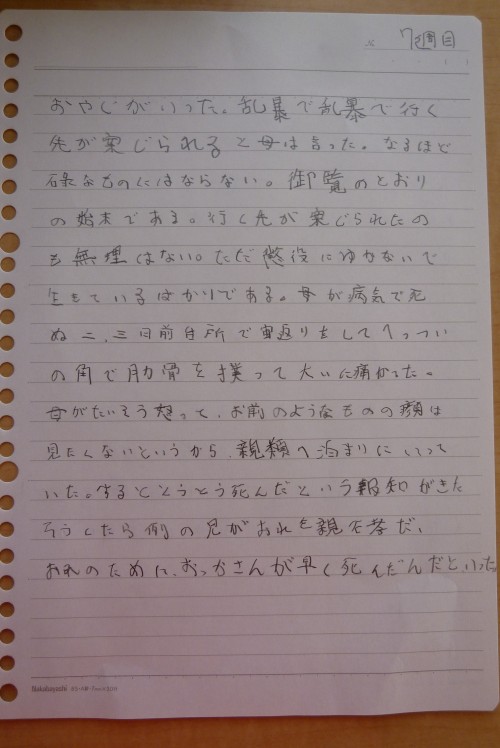 7週目
おやじがいった。乱暴で乱暴で行く
先が案じられると母は言った。なるほど
碌なものにはならない。御覧のとおり
の始末である。行く先が案じられたの
も無理はない。ただ懲役に行かないで
生きているばかりである。母が病気で死
ぬ二、三日前台所で宙返りをしてへっつい
の角で肋骨を撲って大いに痛かった。
母がたいそう怒って、お前のようなものの顔は
見たくないというから、親類へ泊まりにいって
いた。するととうとう死んだという報知がきた
そうしたら例の兄がおれを親不孝だ、
おれのために、おっかさんが早く死んだんだといった。